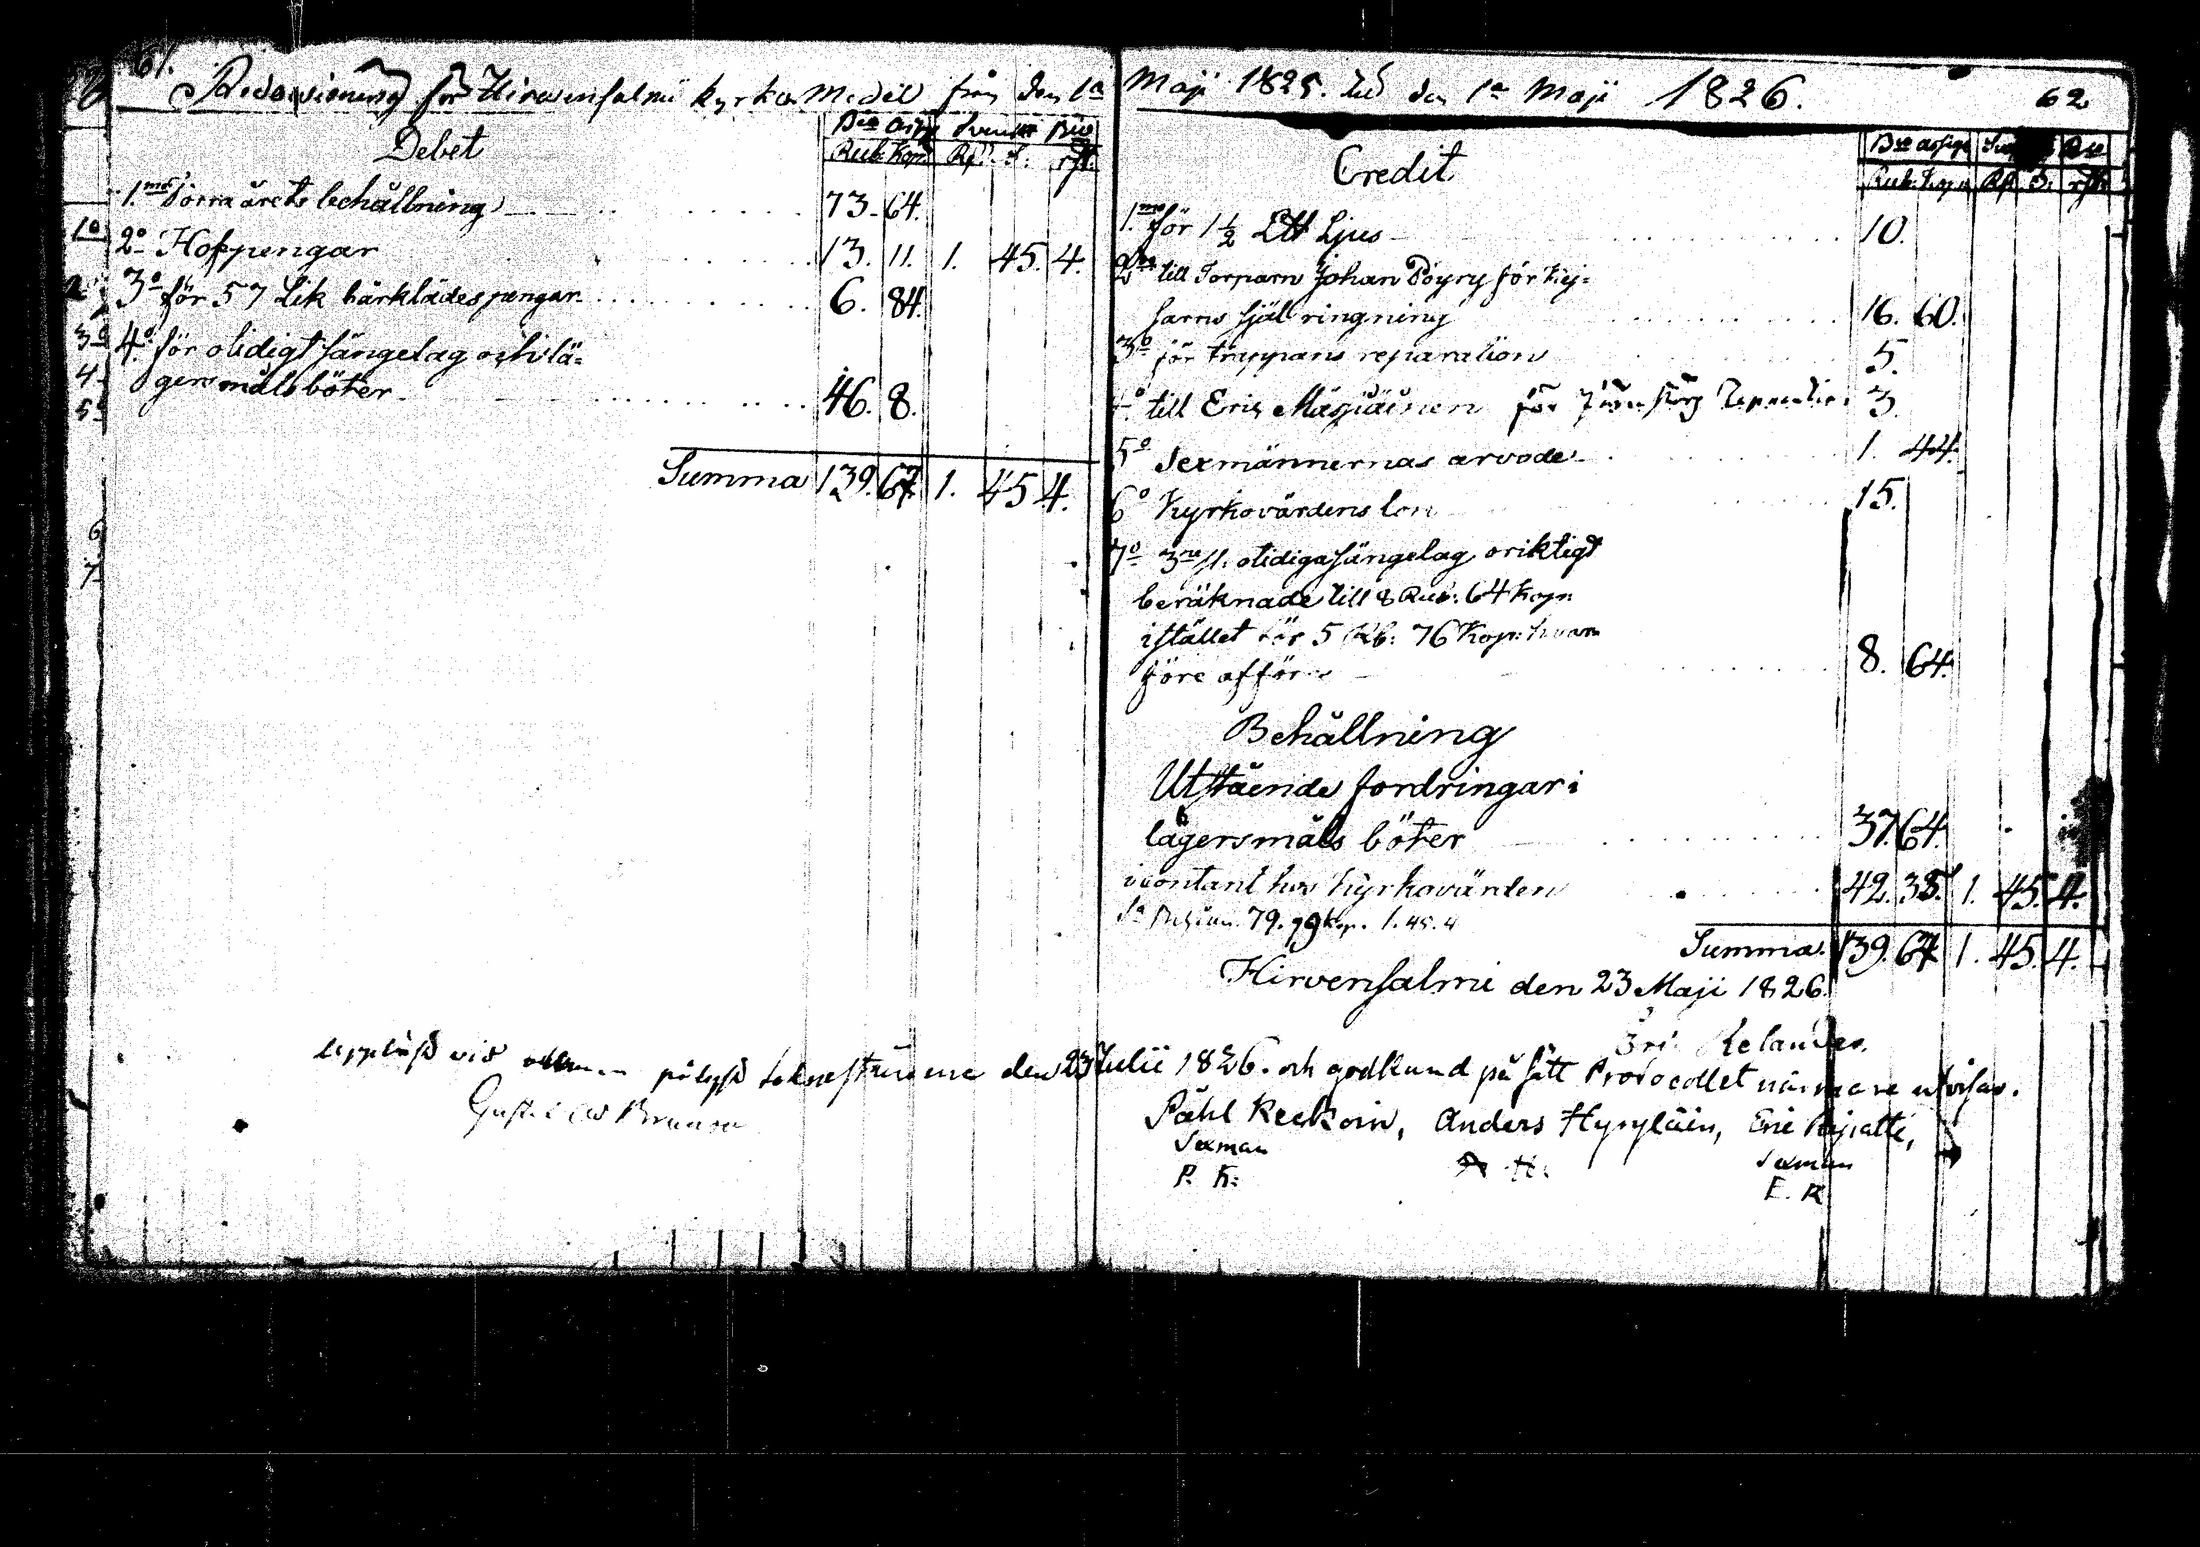 61.
Redovisning för Hirvensalmi kyrko Medel från den 1a Maji 1825. till den 1a Maji 1826.
62
Debet
Bco Assig Svenskt Bco
Rub. Kop. Rd. S. rst.
1.mo Förra årets behållning 73. 64.
2o Hofpengar 13. 11. 1. 45. 4.
3o för 57 Lik bårklädes pengar 6. 84.
4o för otidigt sängelag och lä-
gersmåls böter 46. 8.
Summa 139. 67. 1. 45. 4.
Credit
Bco Assig Bco
Rub. Kop. Rd. S. rst.
1.mo för 1 1/2 Ltt Ljus 10.
2do till Torparn Johan Pöyry för Kej-
sarns själ ringning 16. 60.
3o för trappans reparation 5.
4o till Eric för 3.
5o Sexmännernas arvode 1. 44.
6o Kyrkovärdens lön 15.
7o 3ne st. otidiga sängelag oriktigt
beräknade till 8 Rub. 64 Kop.
istället för 5 Rb. 76 Kop. hvar-
före afföres 8. 64.
Behållning
Utstående fordringar i
lägersmåls böter 37. 64.
contant hos Kyrkovärden 42. 35. 1. 45. 4.
Sa 79. 99 Kop. 1. 45. 4
Summa 139. 67 1. 45. 4.
Hirvensalmi den 23 Maji 1826.
Eric Relander.
vid pålyst den 23 Julii 1826. och godkänd på sätt Protocollet närmare utvisar.
Påhl Keckoin, Anders Hyryläin, Eric
Sexman Sexman
P. K. A. H. E. R